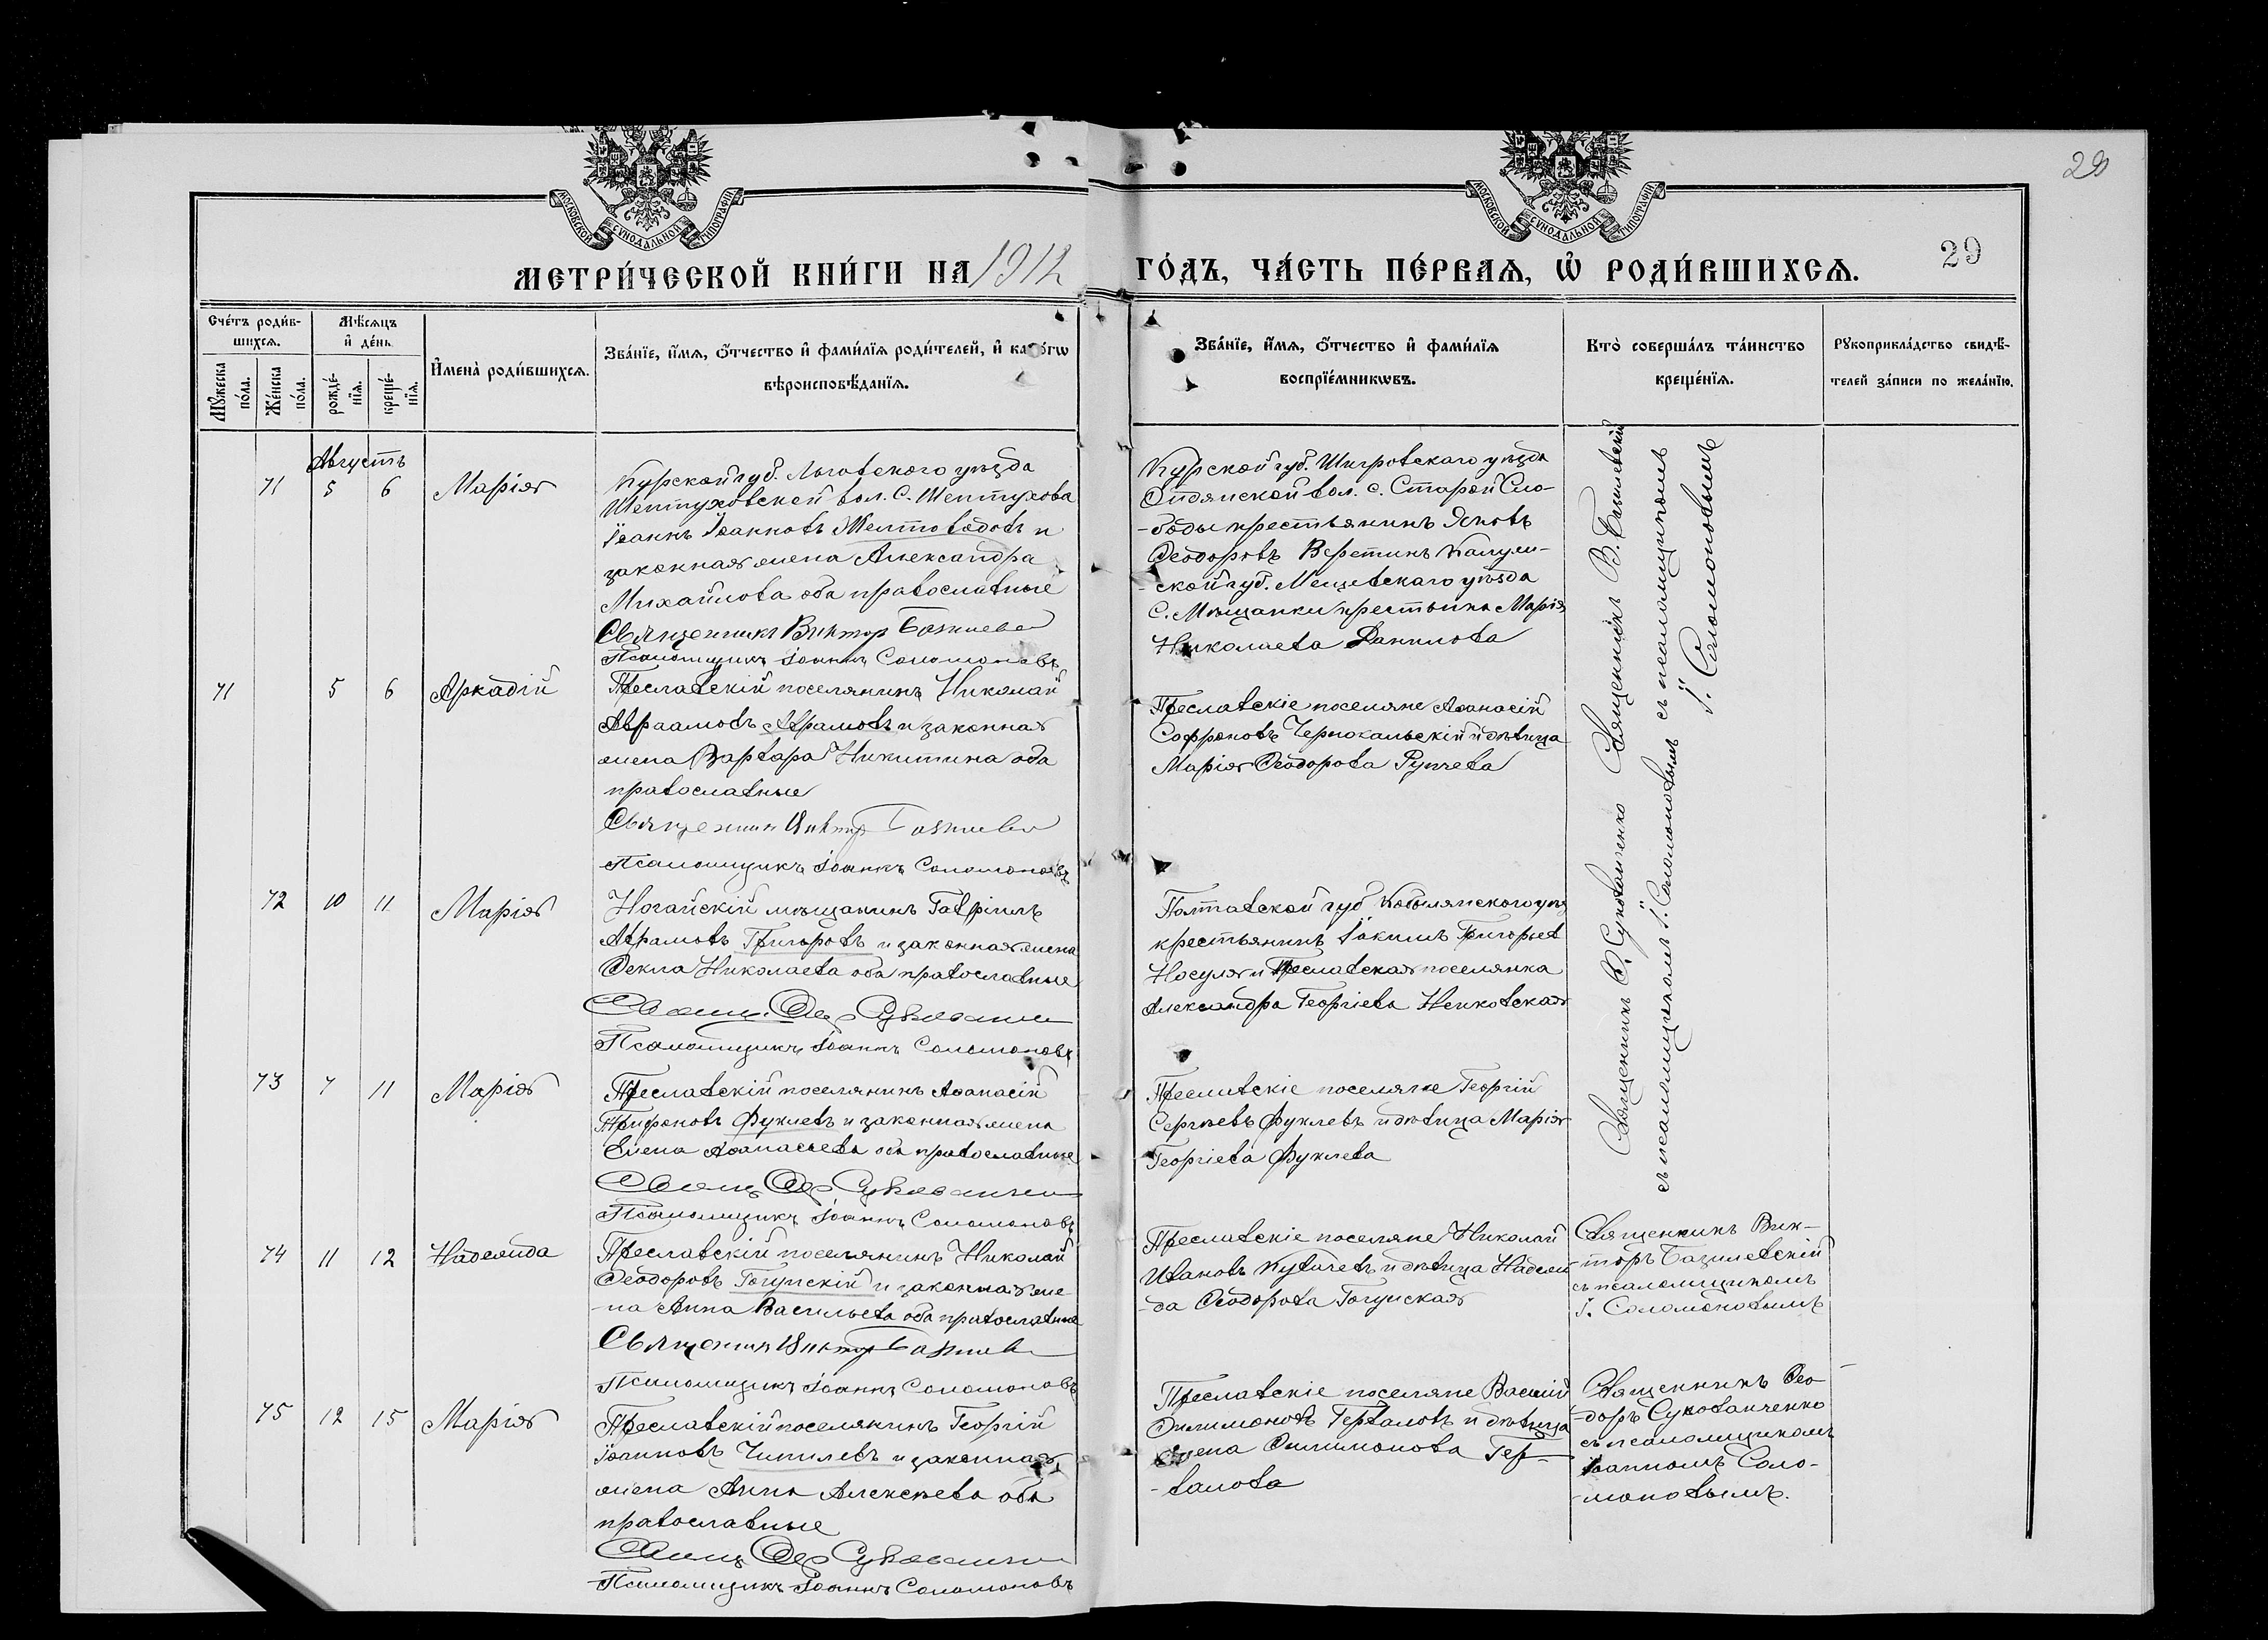 29
МОСКОВСКОЙ СѴНОДАЛЬНОЙ ТИПОГРАФІИ
МОСКОВСКОЙ СѴНОДАЛЬНОЙ ТИПОГРАФІИ
МЕТРИ́ЧЕСКОЙ КНИ́ГИ НА 1912
ГО́ДЪ, ЧА́СТЬ ПЕ́РВАѦ, Ѽ РОДИ́ВШИХСѦ.
29
Сче́тъ роди́в-
шихсѧ.
Мѣ́сѧцъ
и҆ де́нь
И҆мена̀ роди́вшихсѧ.
Зва́нїе, и҆́мѧ, ѻ҆́тчество и҆ фами́лїѧ роди́телей, и҆ како́гѡ
вѣроисповѣ́данїѧ.
Мꙋ́жеска
по́ла.
Же́нска
по́ла.
рожде́-
нїѧ.
креще́-
нїѧ.
Зва́нїе, и҆́мѧ, ѻ҆́тчество и҆ фами́лїѧ
воспрїе́мникѡвъ.
Кто̀ соверша́лъ та́инство
креще́нїѧ.
Рꙋкоприкла́дство свидѣ́-
телей за́писи по жела́нїю.
Августъ
71 5 6 Марія
Курской губ. Льговскаго уѣзда
Шептуховской вол. С. Шептухова
Іоаннъ Іоанновъ Желтоводовъ и
законная жена Александра
Михайлова оба православные
Священникъ Виктор Базилевс
Псаломщикъ Іоаннъ Соломоновъ
Курской губ. Щигровскаго уѣзда
вол. с. Старой Сло-
-боды крестьянинъ Яковъ
Ѳеодоровъ Веретинъ Калуж-
-ской губ. Мещевскаго уѣзда
С. Мощанки крестьянка Марія
Николаева Данилова
71 5 6 Аркадій
Преславскій поселянинъ Николай
Авраамовъ Аврамовъ и законная
жена Варвара Никитина оба
православные
Священник Виктор Базилевс
Псаломщикъ Іоаннъ Соломоновъ
Преславскіе поселяне Аѳанасій
Софроновъ Чернокальскій и дѣвица
Марія Ѳеодорова Рупчева
72 10 11 Марія
Ногайскій мѣщанинъ Гавріилъ
Аврамовъ Григоровъ и законная жена
Ѳекла Николаева оба православные
Свящ. Ѳед Сукованченко
Псаломщикъ Іоаннъ Соломоновъ
Полтавской губ Кобелякскаго уѣз
крестьянинъ Іакимъ Григорьев
Носуля и Преславская поселянка
Александра Георгіева Ненковская
73 7 11 Марія
Преславскій поселянинъ Аѳанасій
Трифоновъ Фуклевъ и законная жена
Елена Аѳанасьева оба православные
Свящ Ѳед Сукованченко
Псаломщикъ Іоаннъ Соломоновъ
Преславскіе поселяне Георгій
Сергѣевъ Фуклевъ и дѣвица Марія
Георгіева Фуклева
Священникъ Ѳ. Сукованченко Священникъ В. Базилевскій
съ псаломщикомъ І. Соломоновымъ съ псаломщикомъ
І. Соломоновымъ
74 11 12 Надежда
Преславскій поселянинъ Николай
Ѳеодоровъ Гогунскій и законная же-
-на Анна Васильева оба православные
Священник Виктор Базилев
Псаломщикъ Іоаннъ Соломоновъ
Преславскіе поселяне Николай
Ивановъ Кувачевъ и дѣвица Надеж-
-да Ѳеодорова Гогунская
Священникъ Вик-
-торъ Базилевскій
съ псаломщикомъ
І. Соломоновымъ
75 12 15 Марія
Преславскій поселянинъ Георгій
Іоанновъ Чипилевъ и законная
жена Анна Алексѣева оба
православные
Свящ Ѳед Сукованченко
Псаломщикъ Іоаннъ Соломоновъ
Преславскіе поселяне Василій
Филимоновъ Герваловъ и дѣвица
Елена Филимонова Гер-
-валова
Священникъ Ѳео-
-доръ Сукованченко
съ псаломщикомъ
Іоанномъ Соло-
-моновымъ.